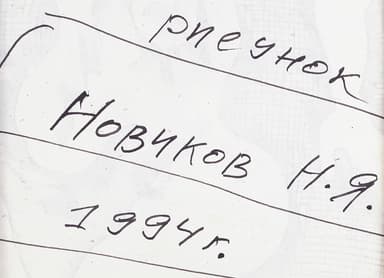 рисунок
Новиков Н.Я.
1994г.